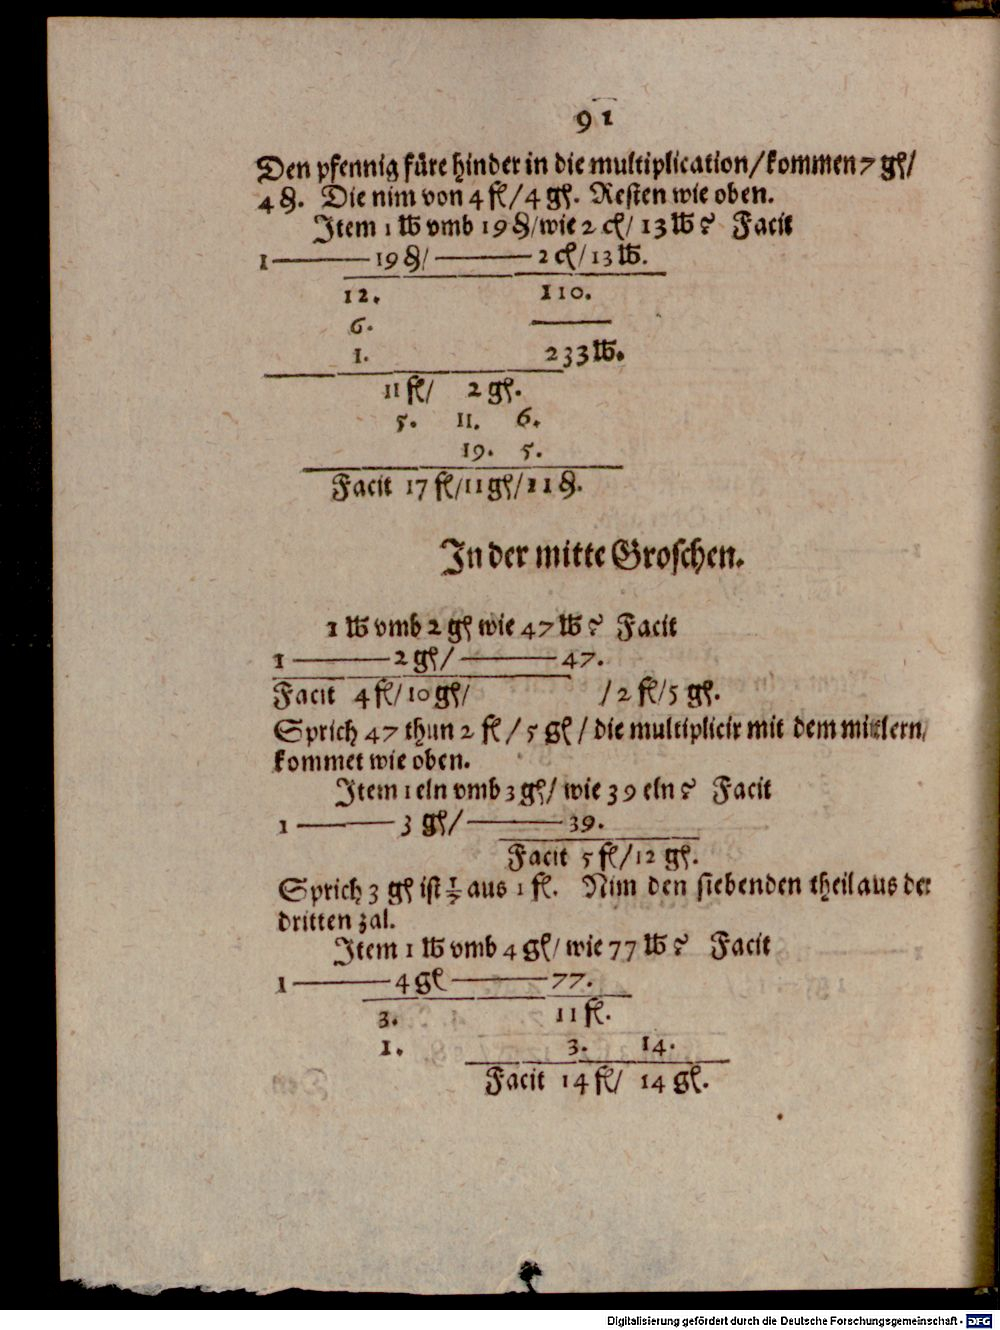 91
Den pfennig füre hinder in die multiplication/kommen 7 gſ/
4 ₰. Die nim von 4 fl/4 gſ. Resten wie oben.
Item 1 ℔ vmb 19 ₰/wie 2 cſ/ 13 ℔? Facit
1 ——— 19 ₰/ ——— 2 cſ/13 ℔.
12. 110.
6.
1. 233 ℔.
11 fl/ 2 gſ.
5. 11. 6.
19. 5.
Facit 17 fl/11 gſ/11 ₰.
In der mitte Groſchen.
1 ℔ vmb 2 gſ wie 47 ℔? Facit
1 ——— 2 gſ/ ——— 47.
Facit 4 fl/10 gſ/ /2 fl/5 gſ.
Sprich 47 thun 2 fl/5 gſ/die multiplicir mit dem mitlern/
kommet wie oben.
Item 1 eln vmb 3 gſ/ wie 39 eln? Facit
1 ——— 3 gſ/ ——— 39.
Facit 5 fl/12 gſ.
Sprich 3 gſ iſt 1/7 aus 1 fl. Nim den ſiebenden theil aus der
dritten zal.
Item 1 ℔ vmb 4 gſ/ wie 77 ℔? Facit
1 ——— 4 gſ ——— 77.
3. 11 fl.
1. 3. 14.
Facit 14 fl/ 14 gſ.
Digitalisierung gefördert durch die Deutsche Forschungsgemeinschaft - DFG